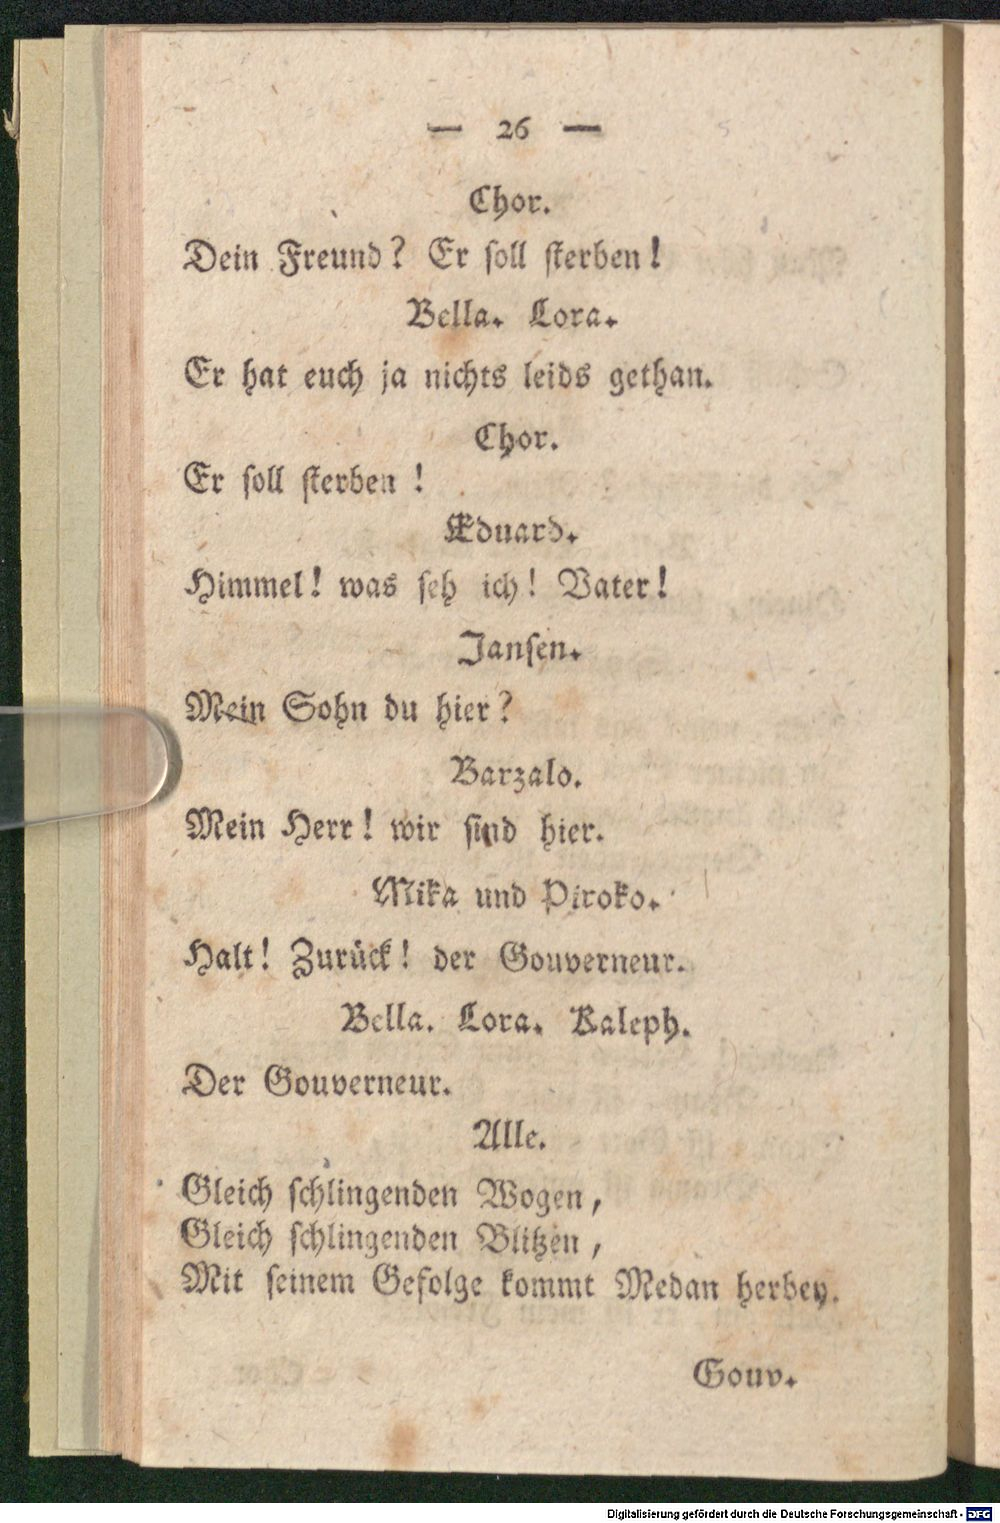 — 26 —
Chor.
Dein Freund? Er soll sterben!
Bella. Lora.
Er hat euch ja nichts leids gethan.
Chor.
Er soll sterben!
Eduard.
Himmel! was seh ich! Vater!
Jansen.
Mein Sohn du hier?
Barzalo.
Mein Herr! wir sind hier.
Mika und Piroko.
Halt! Zurück! der Gouverneur.
Bella. Lora. Kaleph.
Der Gouverneur.
Alle.
Gleich schlingenden Wogen,
Gleich schlingenden Blitzen,
Mit seinem Gefolge kommt Medan herbey.
Gouv.
Digitalisierung gefördert durch die Deutsche Forschungsgemeinschaft - DFG